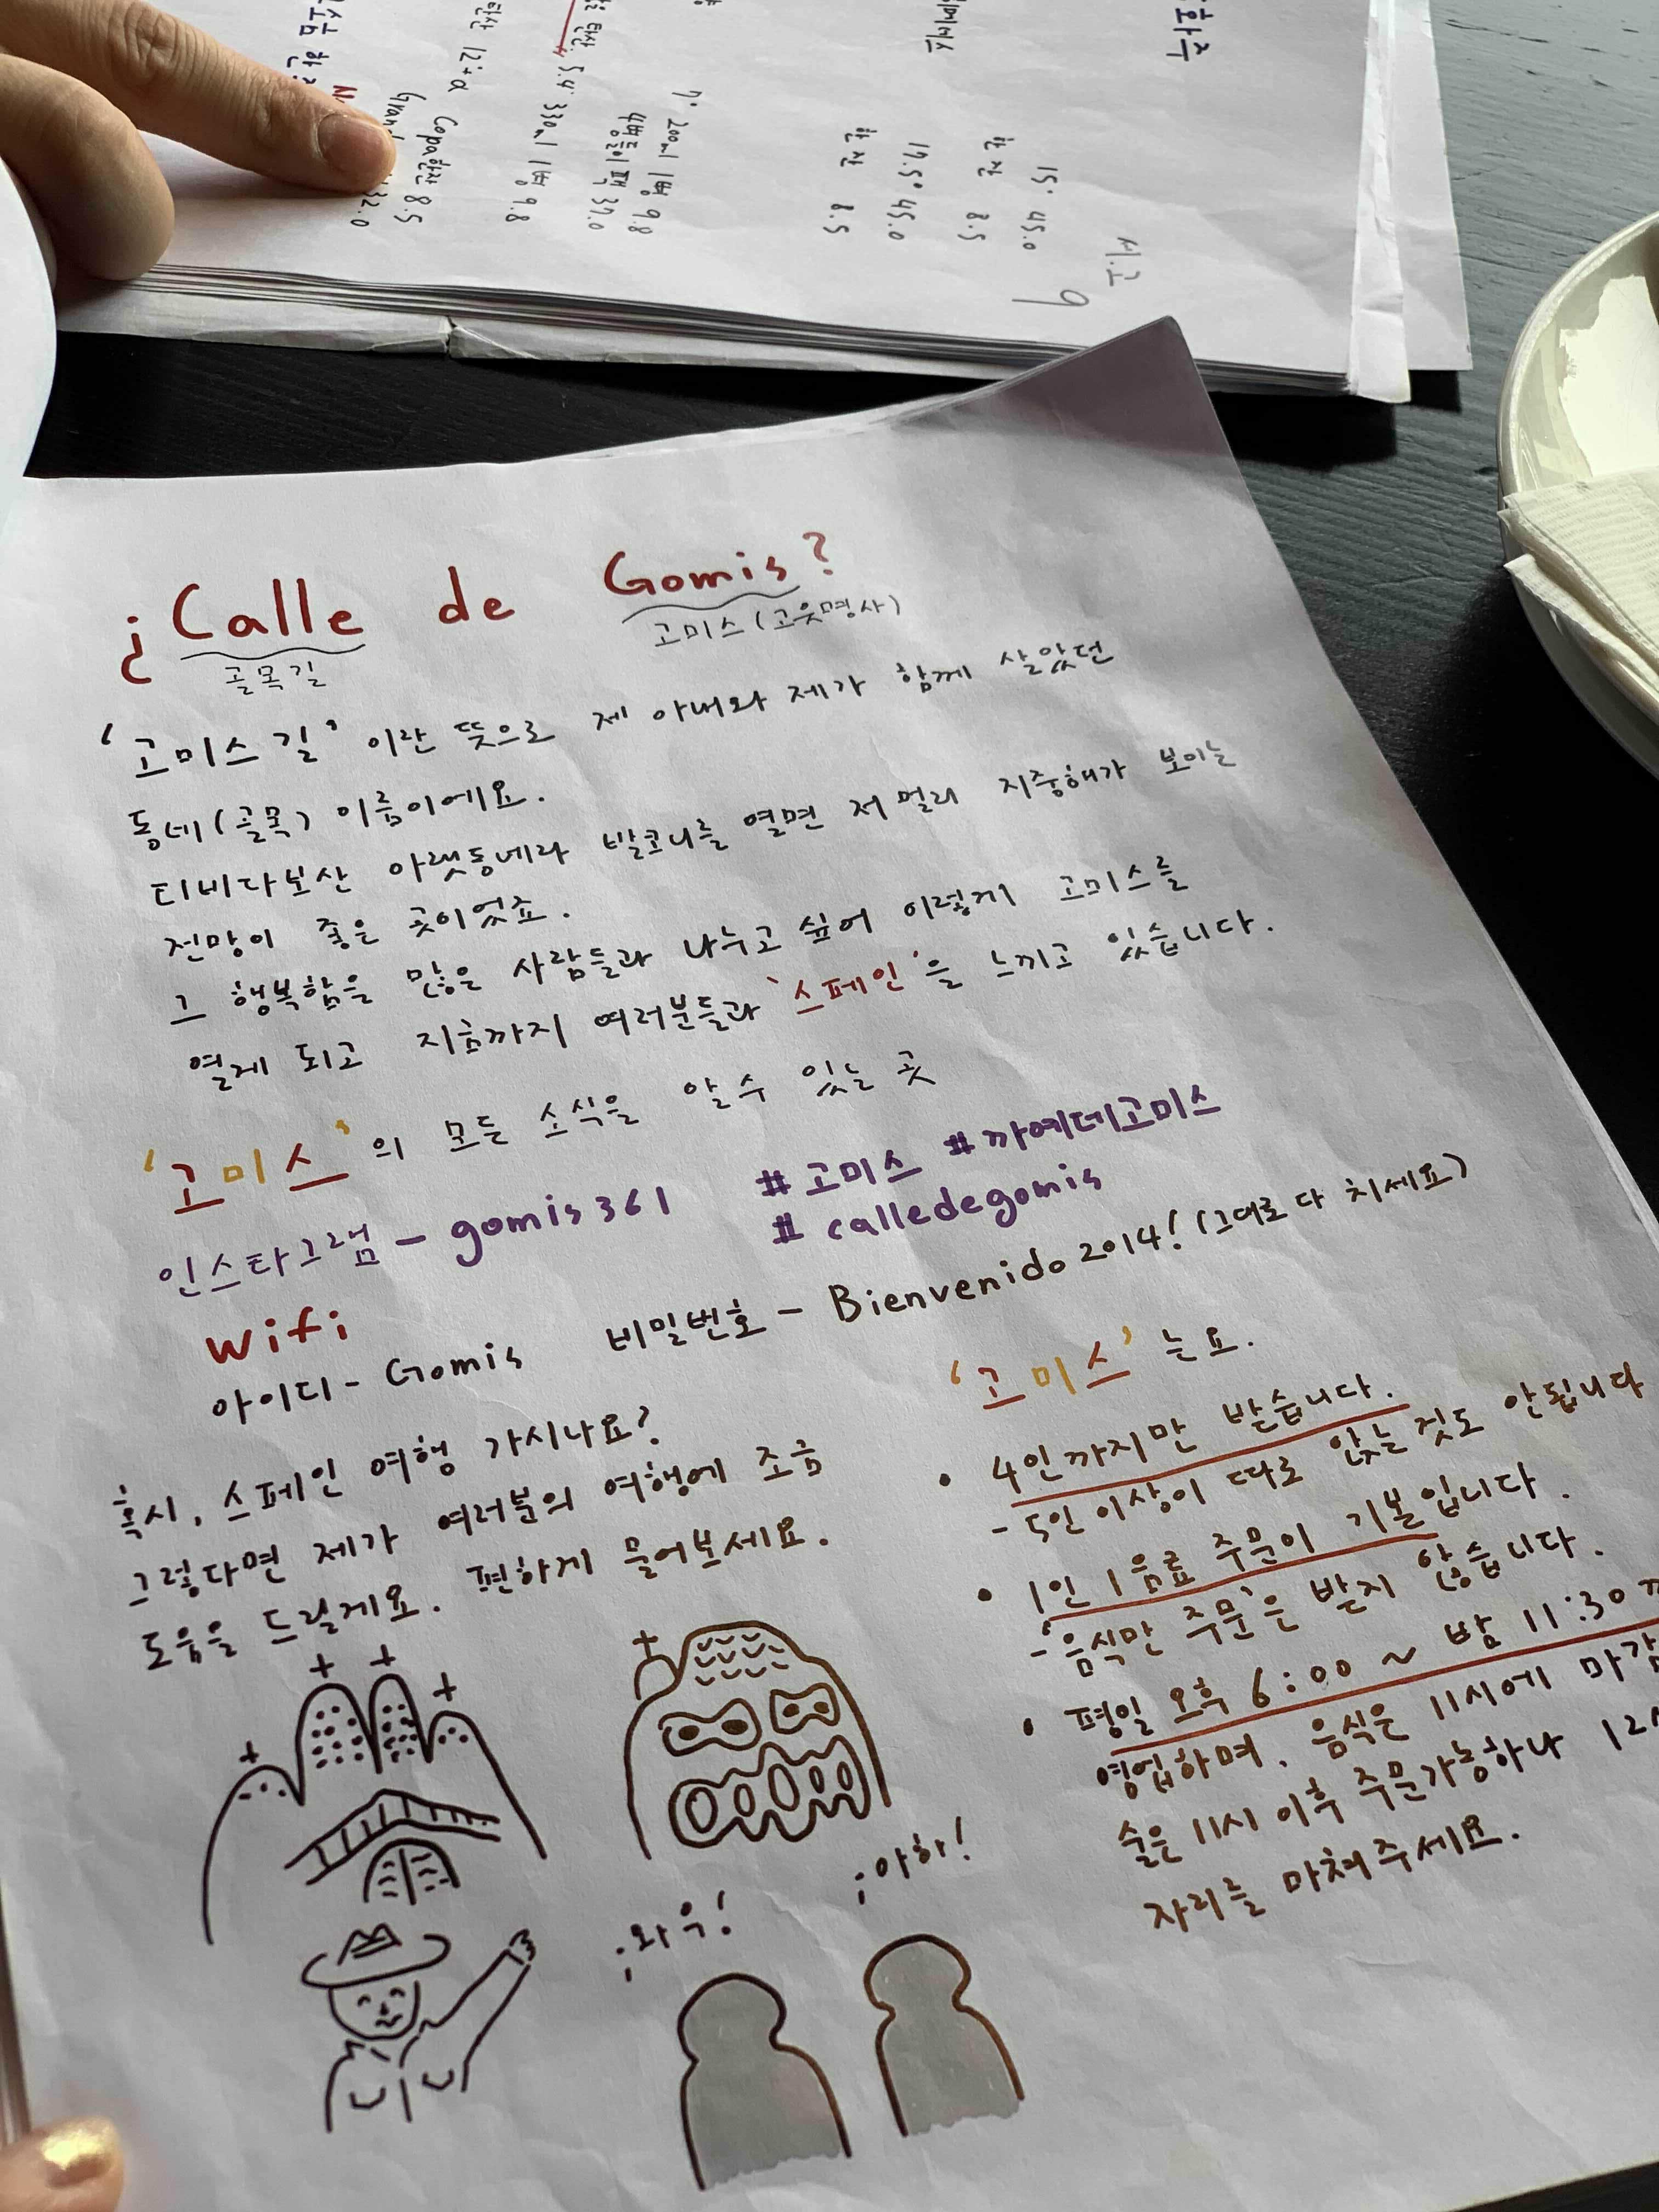 ¿Calle de Gomis?
골목길 고미스(고유명사)
'고미스길' 이란 뜻으로 제 아내와 제가 함께 살았던
동네(골목) 이름이에요.
티비다보산 아랫동네라 발코니를 열면 저 멀리 지중해가 보이는
전망이 좋은 곳이었죠.
그 행복함을 많은 사람들과 나누고 싶어 이렇게 고미스를
열게 되고 지금까지 여러분들과 '스페인'을 느끼고 있습니다.
'고미스'의 모든 소식을 알 수 있는 곳
인스타그램 - gomis361 #고미스 #까예데고미스
#calledegomis
Wifi
아이디 - Gomis 비밀번호 - Bienvenido2014! (그대로 다 치세요)
혹시, 스페인 여행 가시나요?
그렇다면 제가 여러분의 여행에 조금
도움을 드릴게요. 편하게 물어보세요.
'고미스' 는요.
• 4인까지만 받습니다.
- 5인 이상이 따로 앉는 것도 안됩니다
• 1인 1음료 주문이 기본입니다.
- '음식만 주문'은 받지 않습니다.
• 평일 오후 6:00 ~ 밤 11:30
영업하며, 음식은 11시에 마감
술은 11시 이후 주문가능하나 12
자리를 마쳐주세요.
¡와우!
¡아하!
시.고
9
15° 45.0
한 잔 8.5
17.5° 45.0
한 잔 8.5
7° 200ml 1병 9.8
4병들이 팩 37.0
5.4° 330ml 1병 9.8
12°+α Copa한잔 8.5
32.0